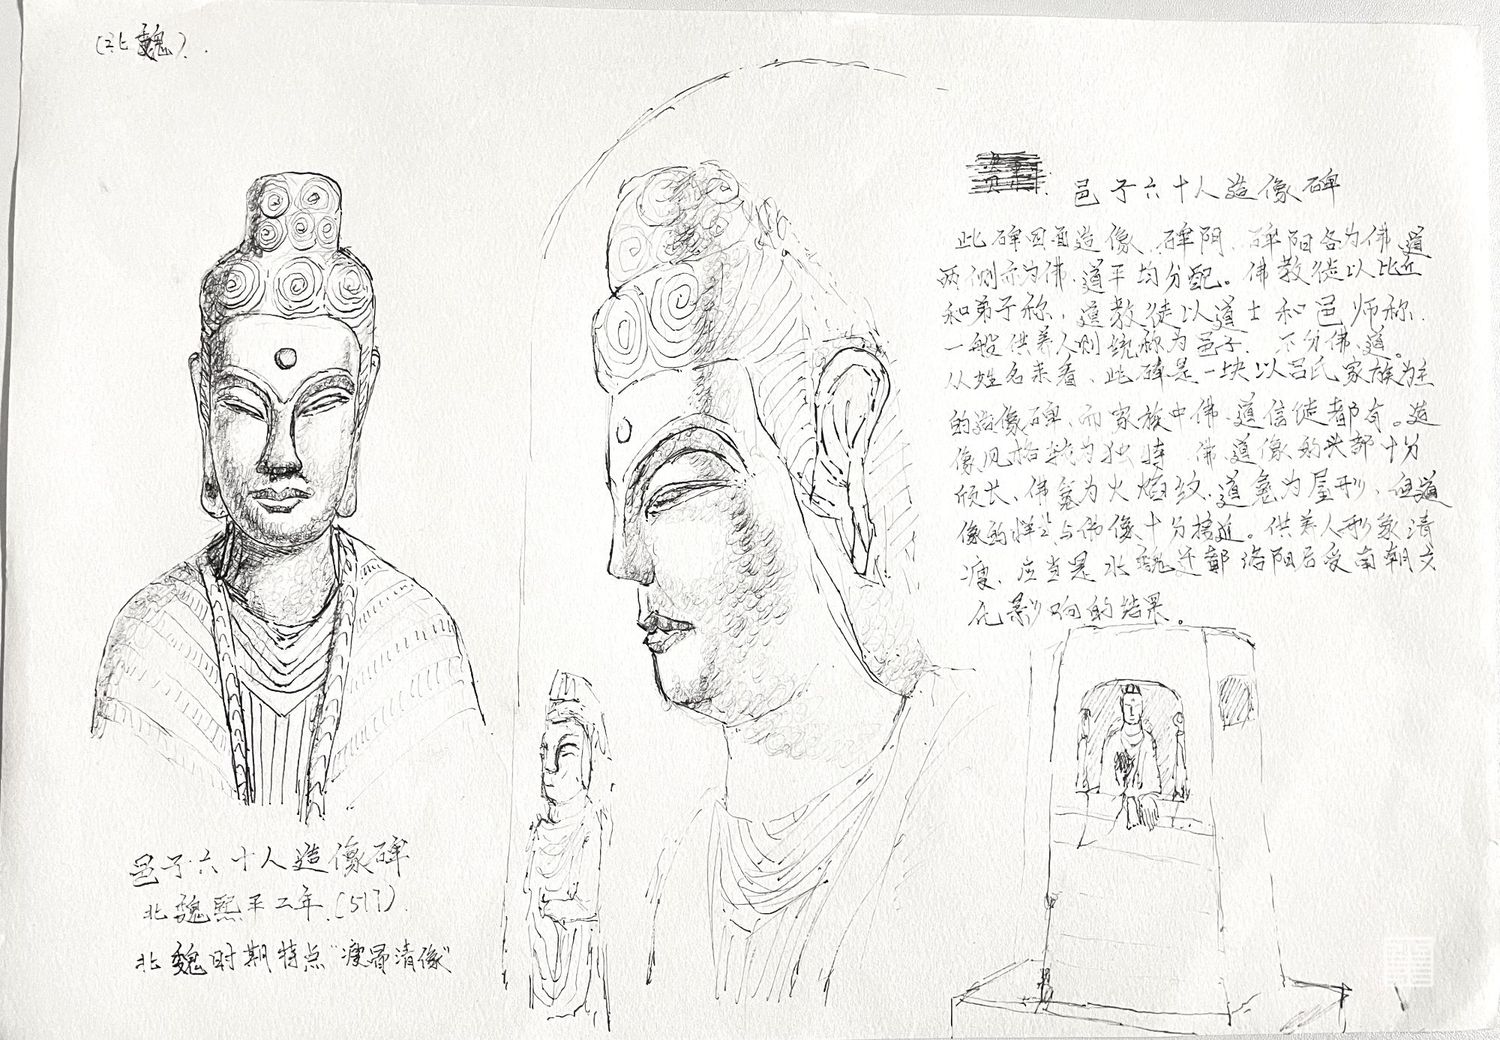 (北魏).
邑子六十人造像碑
此碑四面造像、碑阴、碑阳各为佛、道
两侧亦为佛、道平均分配。佛教徒以比丘
和弟子称，道教徒以道士和邑师称.
一般供养人则统称为邑子. 下分佛、道。
从姓名来看、此碑是一块以吕氏家族为主
的造像碑、而家族中佛、道信徒都有。造
像风格较为独特 佛、道像的头部十分
颀长、佛龛为火焰纹、道龛为屋形、但道
像的样公与佛像十分接近。供养人形象清
瘦、应当是北魏迁都洛阳后受南朝文
化影响的结果。
邑子六十人造像碑
北魏熙平二年.(517).
北魏时期特点"瘦骨清像"